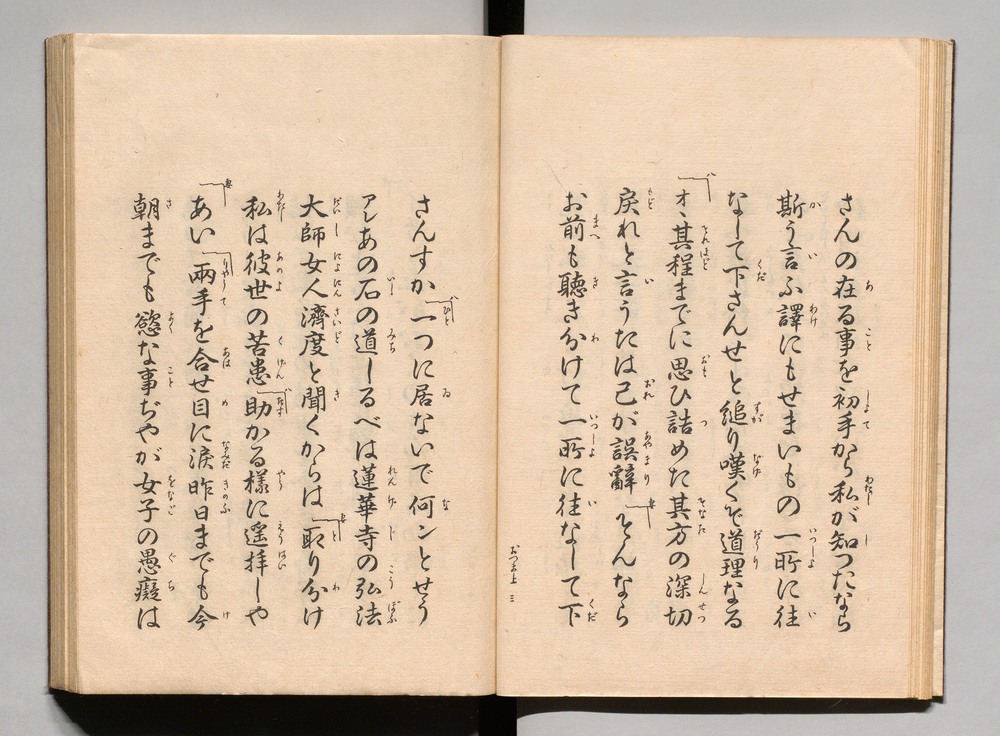 さんの在る事を初手から私が知つたなら
斯う言ふ譯にもせまいもの一所に往
なして下さんせと縋り嘆くぞ道理なる
オヽ其程までに思ひ詰めた其方の深切
戻れと言うたは己が誤辭そんなら
お前も聽き分けて一所に往なして下
おつま上 三
さんすか一つに居ないで何ンとせう
アレあの石の道しるべは蓮華寺の弘法
大師女人濟度と聞くからは取り分け
私は彼世の苦患助かる樣に遥拝しや
あい兩手を合せ目に涙昨日までも今
朝までも慾な事ぢやが女子の愚癡は